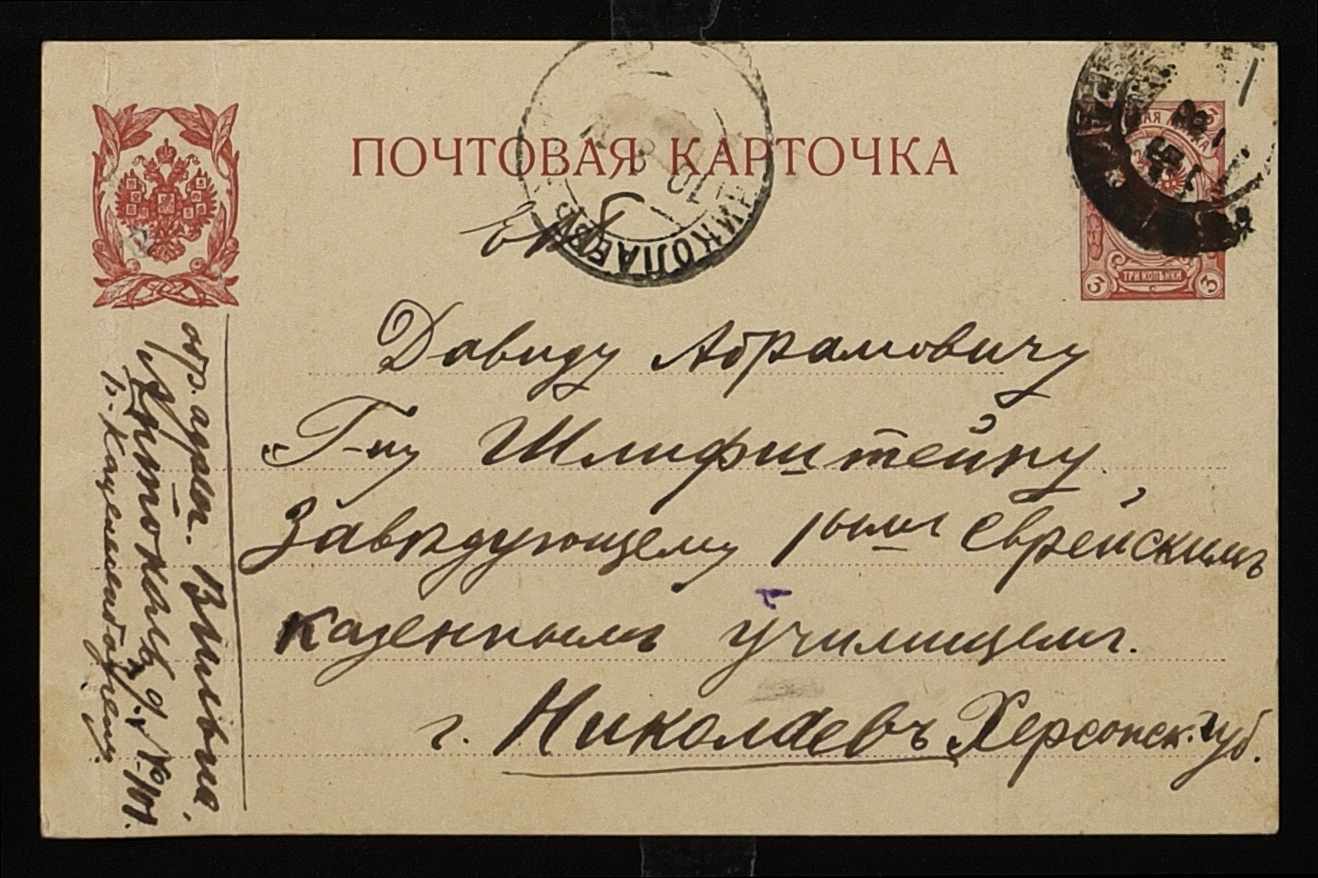 ПОЧТОВАЯ КАРТОЧКА
НИКОЛАЕВЪ
ТРИ КОПѢЙКИ
3 3
Давиду Абрамовичу
Г-ну Шлифштейну
Завѣдующему 1ымъ еврейскимъ
казеннымъ училищемъ.
г. Николаевъ Херсонск. губ.
обр. адрес. Вильна,
д. № 101.